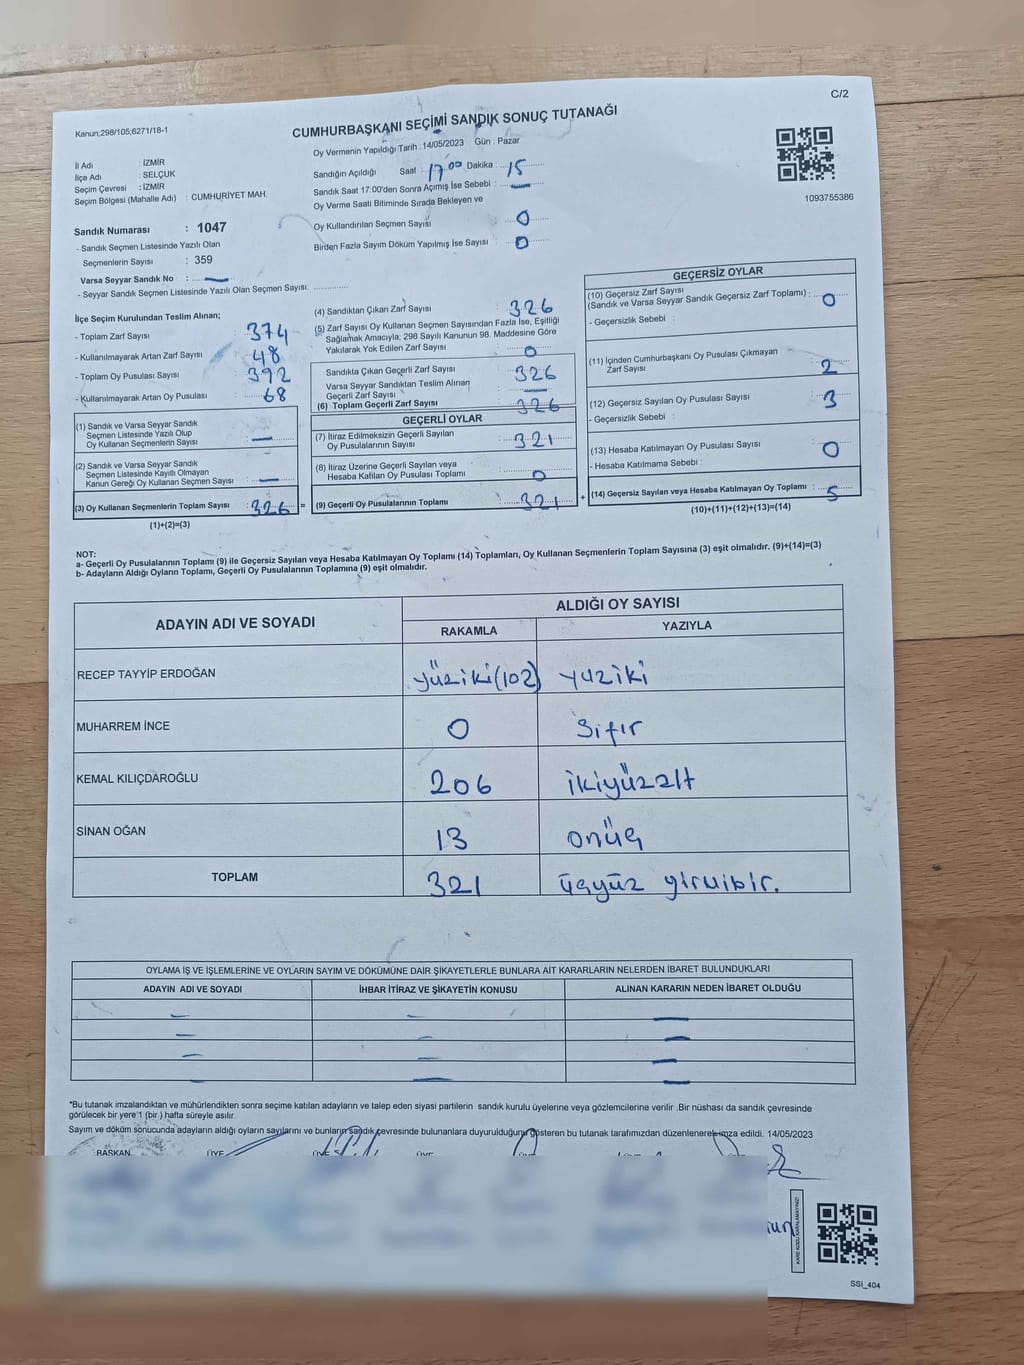 C/2
Kanun;298/105,6271/18-1
CUMHURBAŞKANI SEÇİMİ SANDIK SONUÇ TUTANAĞI
Oy Vermenin Yapıldığı Tarih : 14/05/2023 Gün : Pazar
İl Adı : İZMİR
İlçe Adı : SELÇUK
Seçim Çevresi : İZMİR
Seçim Bölgesi (Mahalle Adı) : CUMHURİYET MAH.
Sandığın Açıldığı Saat 17 00 Dakika : 15
Sandık Saat 17:00'den Sonra Açımış İse Sebebi : —
Oy Verme Saati Bitiminde Sırada Bekleyen ve
Oy Kullandırılan Seçmen Sayısı : 0
Birden Fazla Sayım Döküm Yapılmış İse Sayısı : 0
1093755386
Sandık Numarası : 1047
- Sandık Seçmen Listesinde Yazılı Olan
Seçmenlerin Sayısı : 359
Varsa Seyyar Sandık No : —
- Seyyar Sandık Seçmen Listesinde Yazılı Olan Seçmen Sayısı:
İlçe Seçim Kurulundan Teslim Alınan;
- Toplam Zarf Sayısı 374
- Kullanılmayarak Artan Zarf Sayısı 48
- Toplam Oy Pusulası Sayısı 392
- Kullanılmayarak Artan Oy Pusulası : 68
(1) Sandık ve Varsa Seyyar Sandık
Seçmen Listesinde Yazılı Olup
Oy Kullanan Seçmenlerin Sayısı : —
(2) Sandık ve Varsa Seyyar Sandık
Seçmen Listesinde Kayıtlı Olmayan
Kanun Gereği Oy Kullanan Seçmen Sayısı : —
(3) Oy Kullanan Seçmenlerin Toplam Sayısı : 326 =
(1)+(2)=(3)
(4) Sandıktan Çıkan Zarf Sayısı : 326
(5) Zarf Sayısı Oy Kullanan Seçmen Sayısından Fazla İse, Eşitliği
Sağlamak Amacıyla; 298 Sayılı Kanunun 98. Maddesine Göre
Yakılarak Yok Edilen Zarf Sayısı : 0
Sandıkta Çıkan Geçerli Zarf Sayısı : 326
Varsa Seyyar Sandıktan Teslim Alınan
Geçerli Zarf Sayısı : —
(6) Toplam Geçerli Zarf Sayısı : 326
GEÇERLİ OYLAR
(7) İtiraz Edilmeksizin Geçerli Sayılan
Oy Pusulalarının Sayısı : 321
(8) İtiraz Üzerine Geçerli Sayılan veya
Hesaba Katılan Oy Pusulası Toplamı : 0
(9) Geçerli Oy Pusulalarının Toplamı : 321 +
GEÇERSİZ OYLAR
(10) Geçersiz Zarf Sayısı
(Sandık ve Varsa Seyyar Sandık Geçersiz Zarf Toplamı) : 0
- Geçersizlik Sebebi :
(11) İçinden Cumhurbaşkanı Oy Pusulası Çıkmayan
Zarf Sayısı : 2
(12) Geçersiz Sayılan Oy Pusulası Sayısı : 3
- Geçersizlik Sebebi :
(13) Hesaba Katılmayan Oy Pusulası Sayısı : 0
- Hesaba Katılmama Sebebi :
(14) Geçersiz Sayılan veya Hesaba Katılmayan Oy Toplamı : 5
(10)+(11)+(12)+(13)=(14)
NOT:
a- Geçerli Oy Pusulalarının Toplamı (9) ile Geçersiz Sayılan veya Hesaba Katılmayan Oy Toplamı (14) Toplamları, Oy Kullanan Seçmenlerin Toplam Sayısına (3) eşit olmalıdır. (9)+(14)=(3)
b- Adayların Aldığı Oyların Toplamı, Geçerli Oy Pusulalarının Toplamına (9) eşit olmalıdır.
ADAYIN ADI VE SOYADI
ALDIĞI OY SAYISI
RAKAMLA YAZIYLA
RECEP TAYYİP ERDOĞAN yüziki(102) yüziki
MUHARREM İNCE 0 Sıfır
KEMAL KILIÇDAROĞLU 206 ikiyüzaltı
SİNAN OĞAN 13 onüç
TOPLAM 321 üçyüz yirmibir.
OYLAMA İŞ VE İŞLEMLERİNE VE OYLARIN SAYIM VE DÖKÜMÜNE DAİR ŞİKAYETLERLE BUNLARA AİT KARARLARIN NELERDEN İBARET BULUNDUKLARI
ADAYIN ADI VE SOYADI İHBAR İTİRAZ VE ŞİKAYETİN KONUSU ALINAN KARARIN NEDEN İBARET OLDUĞU
— — —
— — —
— — —
— — —
*Bu tutanak imzalandıktan ve mühürlendikten sonra seçime katılan adayların ve talep eden siyasi partilerin sandık kurulu üyelerine veya gözlemcilerine verilir .Bir nüshası da sandık çevresinde
görülecek bir yere'1 (bir ) hafta süreyle asılır.
Sayım ve döküm sonucunda adayların aldığı oyların sayılarını ve bunların sandık çevresinde bulunanlara duyurulduğunu gösteren bu tutanak tarafımızdan düzenlenerek imza edildi. 14/05/2023
BAŞKAN ÜYE ÜYE ÜYE ÜYE
KARE KODU KARALAMAYINIZ!
SSI_404